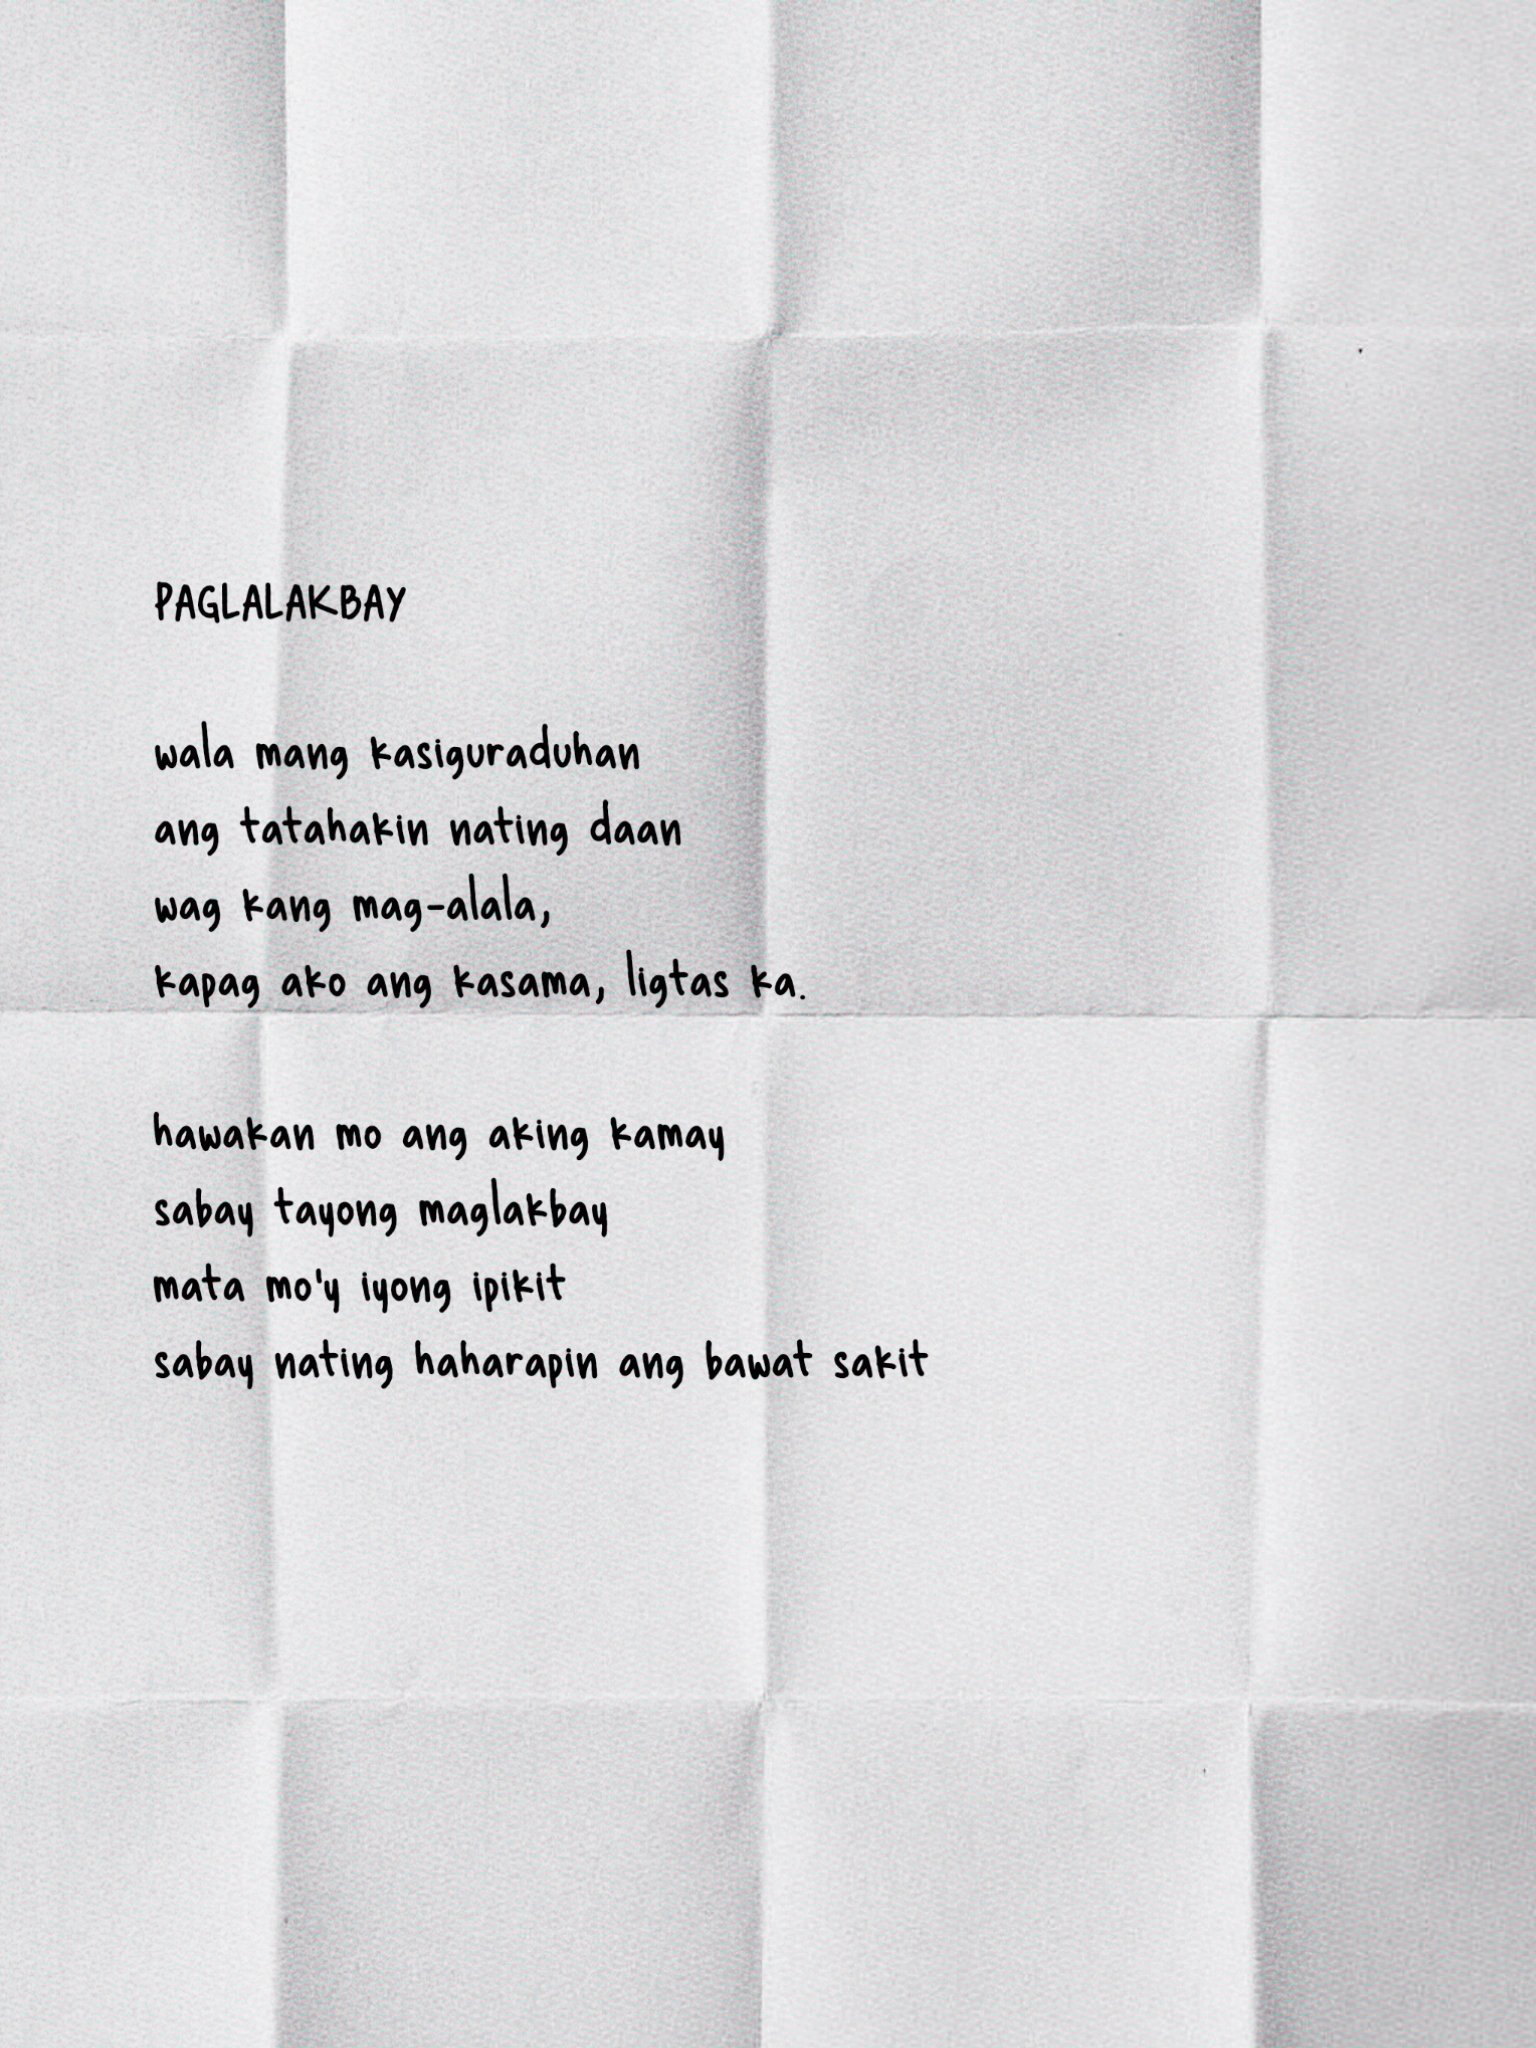 PAGLALAKBAY
wala mang kasiguraduhan
ang tatahakin nating daan
wag kang mag-alala,
kapag ako ang kasama, ligtas ka.
hawakan mo ang aking kamay
sabay tayong maglakbay
mata mo'y iyong ipikit
sabay nating haharapin ang bawat sakit